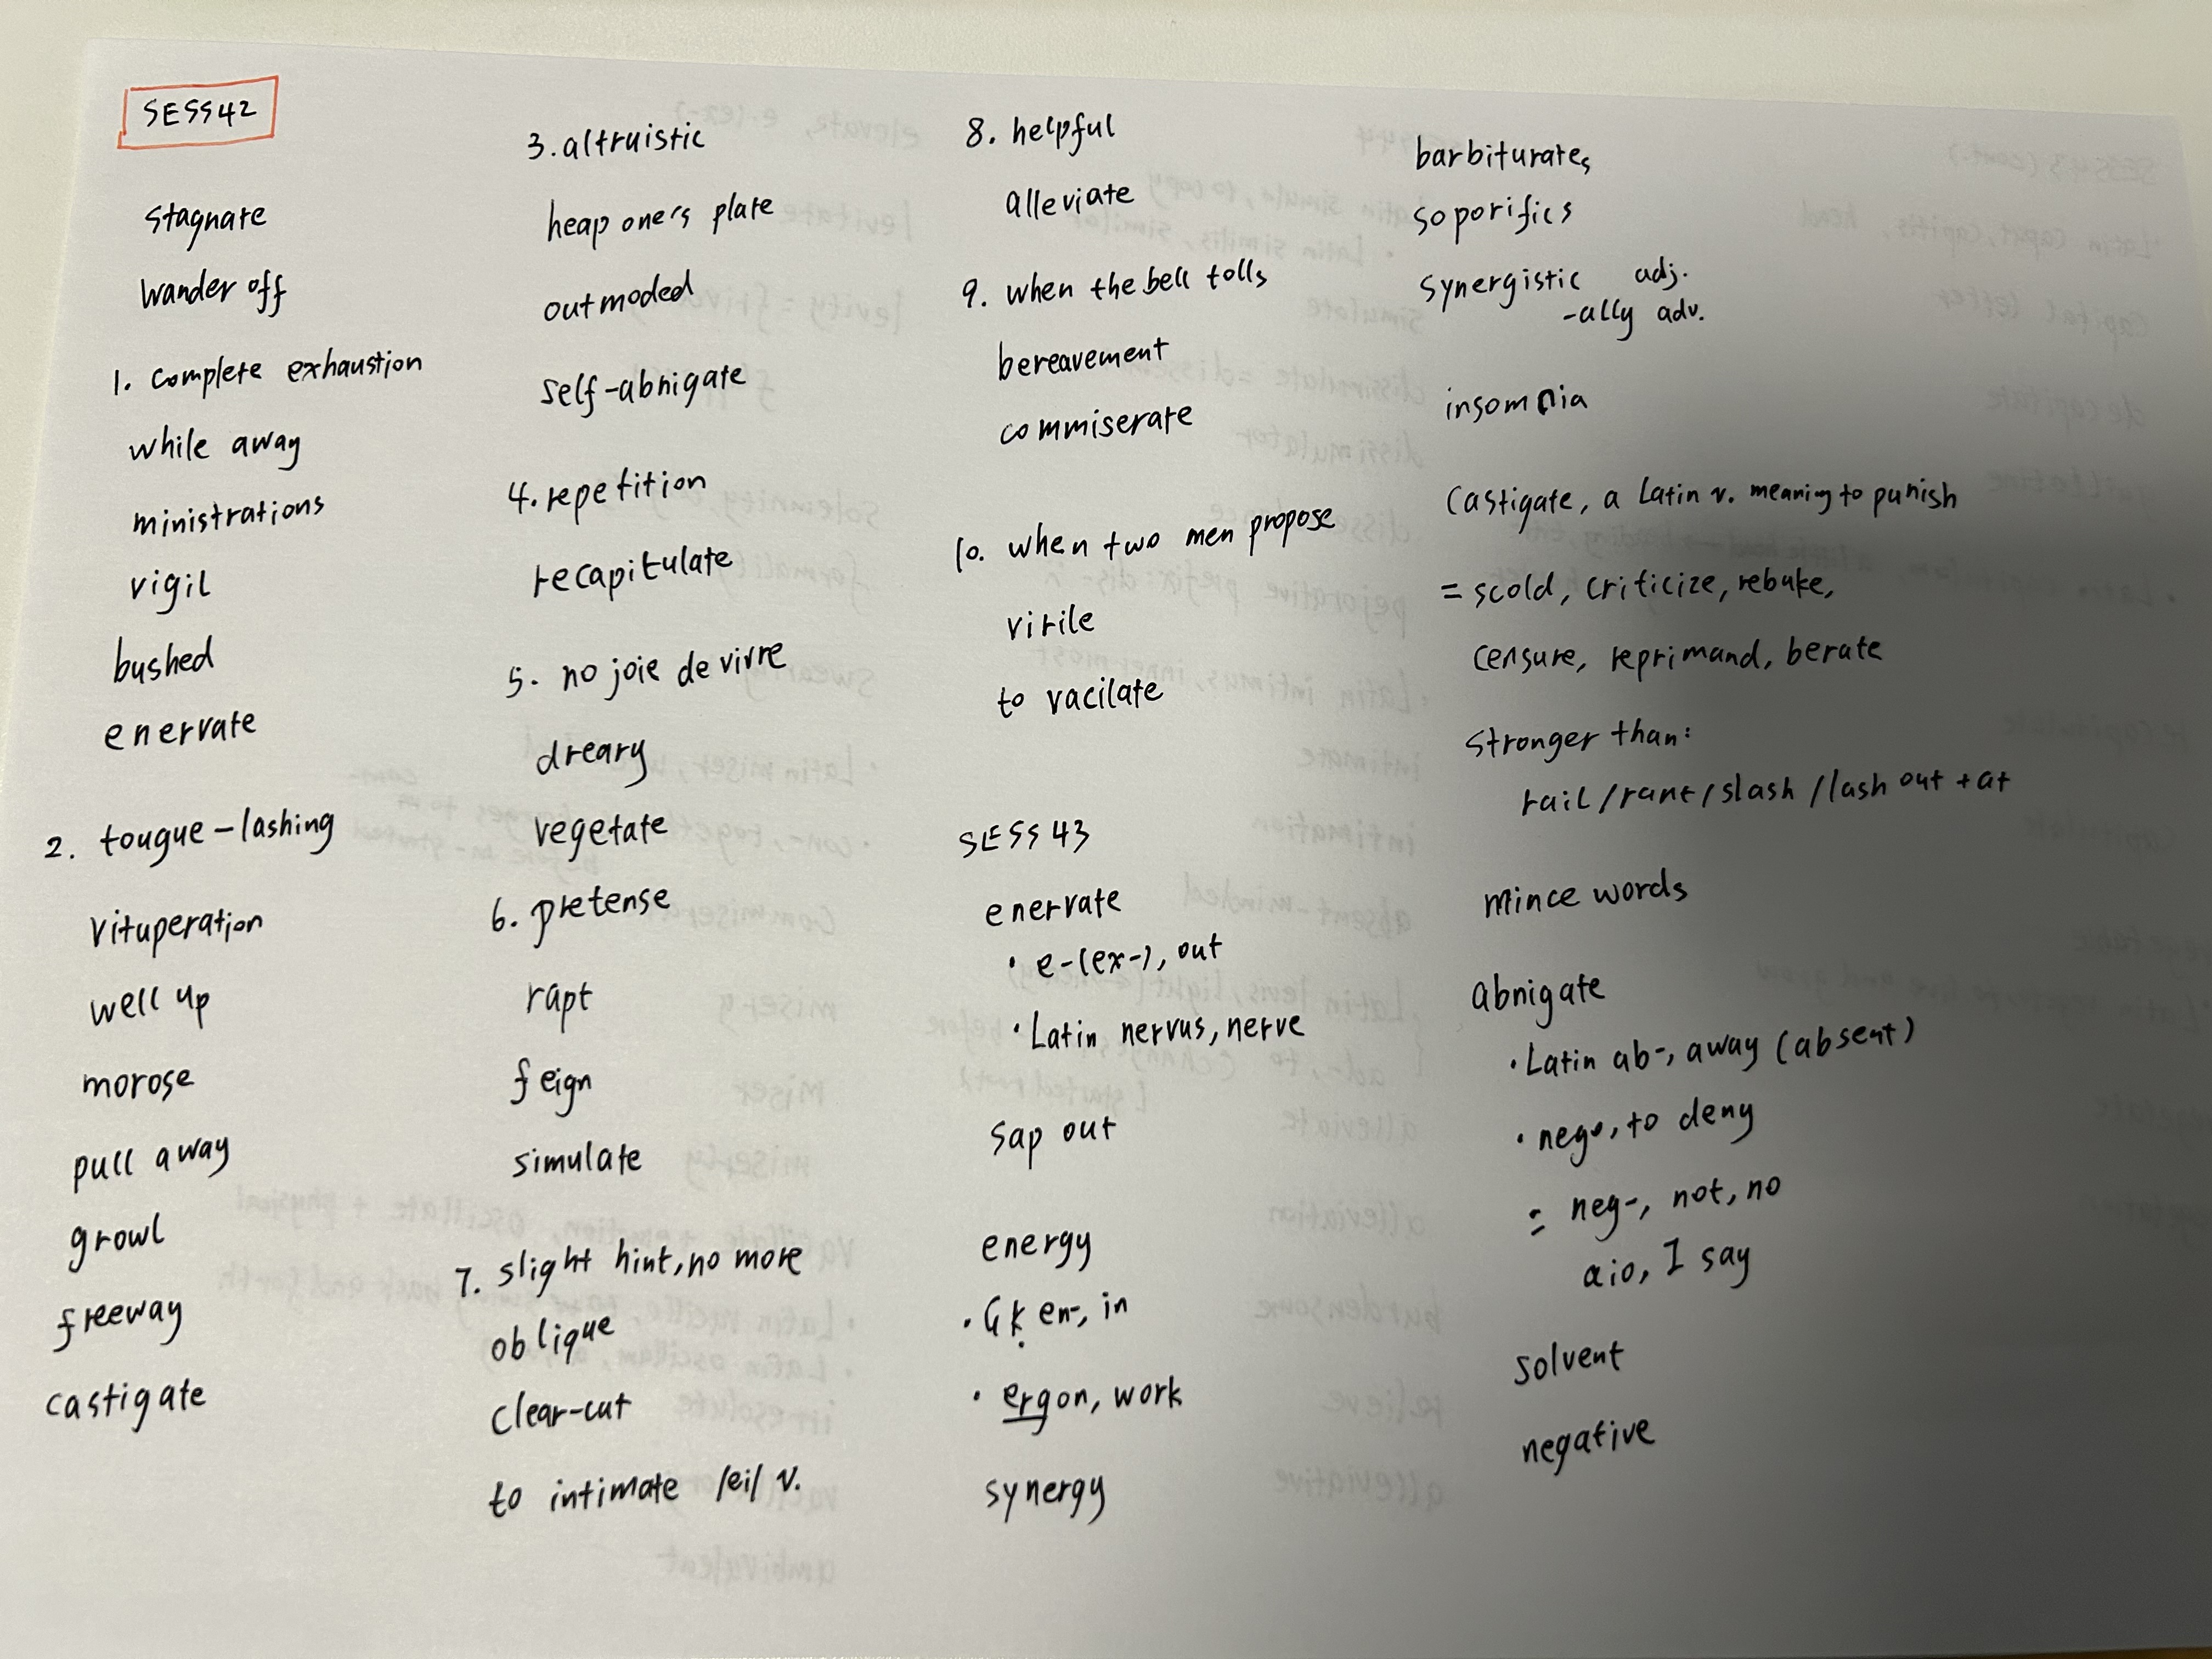 SESS42
stagnate
wander off
1. complete exhaustion
while away
ministrations
vigil
bushed
enervate
2. tougue-lashing
vituperation
well up
morose
pull away
growl
freeway
castigate
3. altruistic
heap one's plate
outmoded
self-abnigate
4. repetition
recapitulate
5. no joie de vivre
dreary
vegetate
6. pretense
rapt
feign
simulate
7. slight hint, no more
oblique
clear-cut
to intimate /ei/ v.
8. helpful
alleviate
9. when the bell tolls
bereavement
commiserate
10. when two men propose
virile
to vacilate
SESS 43
enervate
• e-(ex-), out
• Latin nervus, nerve
sap out
energy
• Gk en-, in
• ergon, work
synergy
barbiturates
soporifics
synergistic adj.
-ally adv.
insomnia
castigate, a Latin v. meaning to punish
= scold, criticize, rebuke,
censure, reprimand, berate
stronger than:
rail/rant/slash/lash out + at
mince words
abnigate
• Latin ab-, away (absent)
• nego, to deny
= neg-, not, no
aio, I say
solvent
negative